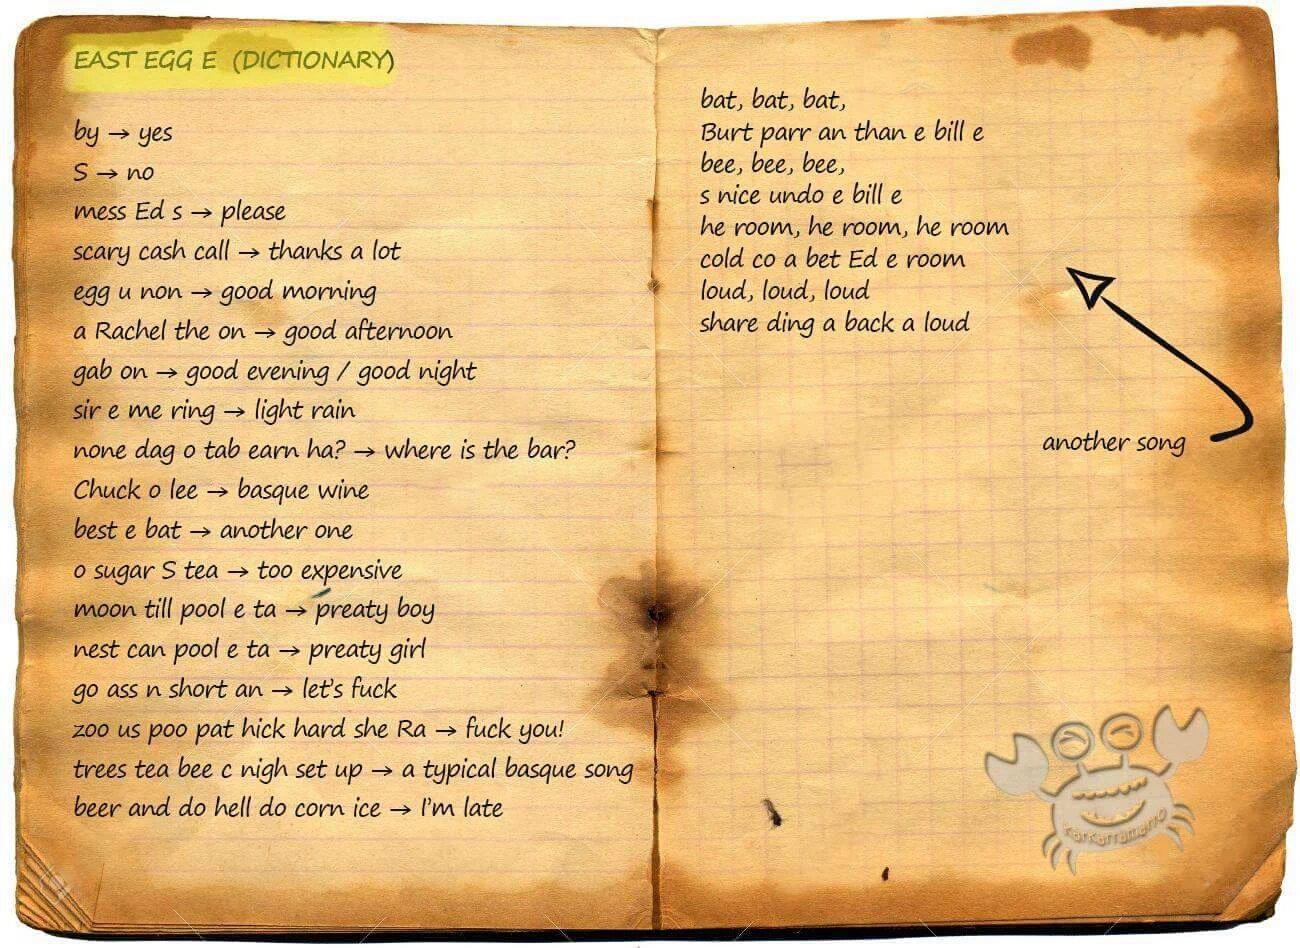 EAST EGG E (DICTIONARY)
by → yes
S → no
mess Ed s → please
scary cash call → thanks a lot
egg u non → good morning
a Rachel the on → good afternoon
gab on → good evening / good night
sir e me ring → light rain
none dag o tab earn ha? → where is the bar?
Chuck o lee → basque wine
best e bat → another one
o sugar S tea → too expensive
moon till pool e ta → preaty boy
nest can pool e ta → preaty girl
go ass n short an → let's fuck
zoo us poo pat hick hard she Ra → fuck you!
trees tea bee c nigh set up → a typical basque song
beer and do hell do corn ice → I'm late
bat, bat, bat,
Burt parr an than e bill e
bee, bee, bee,
s nice undo e bill e
he room, he room, he room
cold co a bet Ed e room
loud, loud, loud
share ding a back a loud
another song
karkarramarro